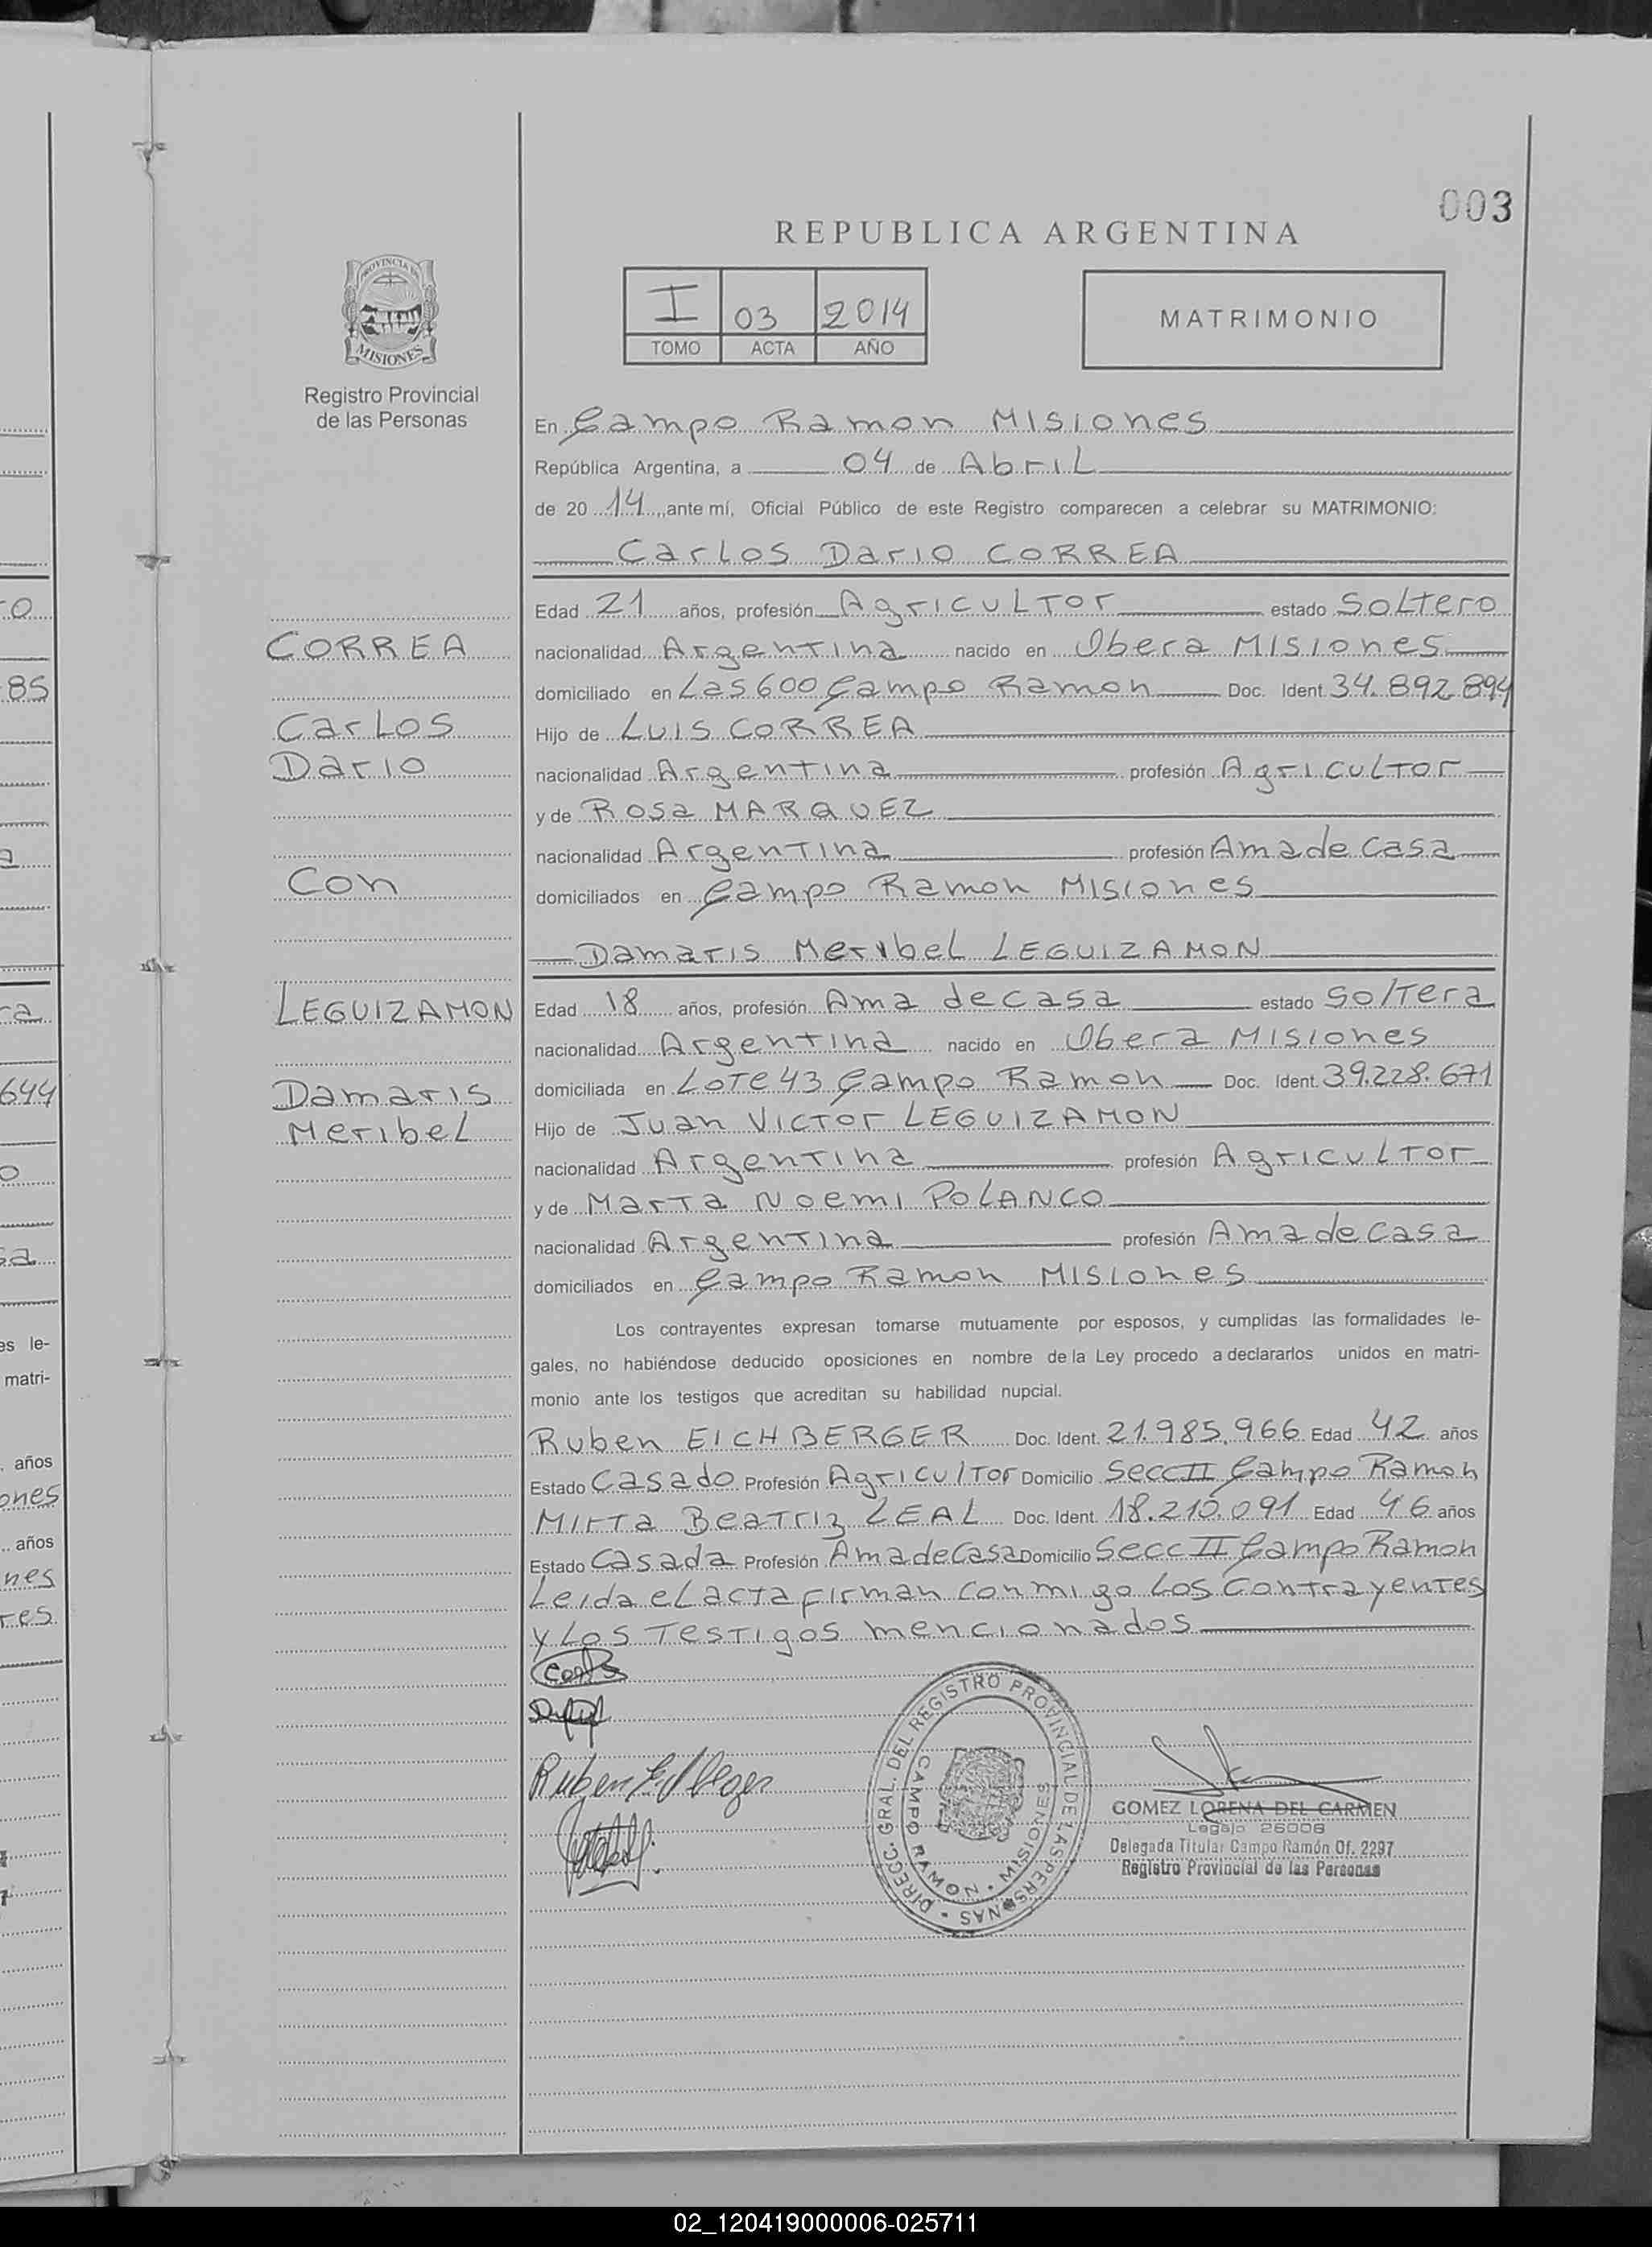 003
REPUBLICA ARGENTINA
I 03 2014
TOMO ACTA AÑO
MATRIMONIO
PROVINCIA DE
MISIONES
Registro Provincial
de las Personas
En Campo Ramon Misiones
República Argentina, a 04 de Abril
de 20 14, ante mí, Oficial Público de este Registro comparecen a celebrar su MATRIMONIO:
Carlos Dario CORREA
Edad 21 años, profesión Agricultor estado Soltero
CORREA
nacionalidad Argentina nacido en Obera Misiones
domiciliado en Las 600 Campo Ramon Doc. Ident. 34.892.894
Carlos
Hijo de Luis CORREA
Dario
nacionalidad Argentina profesión Agricultor
y de Rosa MARQUEZ
nacionalidad Argentina profesión Ama de Casa
Con
domiciliados en Campo Ramon Misiones
Damaris Meribel LEGUIZAMON
LEGUIZAMON
Edad 18 años, profesión Ama de casa estado Soltera
nacionalidad Argentina nacido en Obera Misiones
Damaris
domiciliada en Lote 43 Campo Ramon Doc. Ident. 39.228.671
Meribel
Hijo de Juan Victor LEGUIZAMON
nacionalidad Argentina profesión Agricultor
y de Marta Noemi POLANCO
nacionalidad Argentina profesión Ama de Casa
domiciliados en Campo Ramon Misiones
Los contrayentes expresan tomarse mutuamente por esposos, y cumplidas las formalidades le-
gales, no habiéndose deducido oposiciones en nombre de la Ley procedo a declararlos unidos en matri-
monio ante los testigos que acreditan su habilidad nupcial.
Ruben EICHBERGER Doc. Ident. 21.985.966 Edad 42 años
Estado Casado Profesión Agricultor Domicilio Secc II Campo Ramon
Mirta Beatriz LEAL Doc. Ident. 18.210.091 Edad 46 años
Estado Casada Profesión Ama de Casa Domicilio Secc II Campo Ramon
Leida el acta firman conmigo los Contrayentes
y los Testigos mencionados
Ruben
DIRECC. GRAL. DEL REGISTRO PROVINCIAL DE LAS PERSONAS
CAMPO RAMON - MISIONES
GOMEZ LORENA DEL CARMEN
Legajo 26006
Delegada Titular Campo Ramón Of. 2297
Registro Provincial de las Personas
85
644
es le-
matri-
años
ones
años
nes
res
02_120419000006-025711